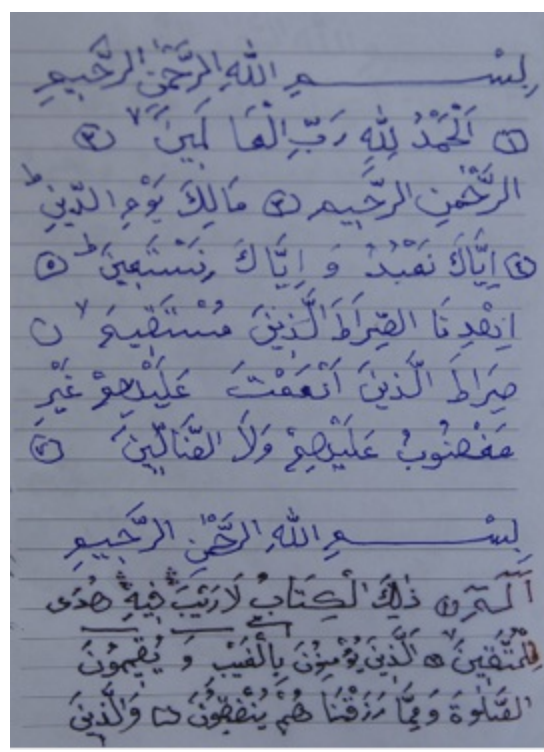 بِسْــــــمِ اللهِ الرَّحْمٰنِ الرَّحِيمِ
① اَلْحَمْدُ لِلّٰهِ رَبِّ الْعَا لَمِينَ ۷ ②
الرَّحْمٰنِ الرَّحِيمِ ③ مَالِكَ يَوْمِ الدِّينِ ط
④ اِيَّاكَ نَعْبُدُ وَ اِيَّا كَ نَسْتَعِينَ ط ⑤
اِهْدِ نَا الصِّرَاطَ الَّذِينَ مُسْتَقِيمَ ۷
صِرَاطَ الَّذِينَ اَنْعَمْتَ عَلَيْهِمْ غَيْرِ
مَغْضُوبُ عَلَيْهِمْ وَلَا الضَّالِّينَ
بِسْــــــمِ اللهِ الرَّحْمٰنِ الرَّحِيمِ
آلٓمٓ ① ذٰلِكَ الْكِتَابُ لَا رَيْبَ فِيهِ هُدًى
لِلْمُتَّقِينَ ۷ اَلَّذِينَ يُؤْمِنُونَ بِالْغَيْبِ وَ يُقِيمُونَ
الصَّلٰوةَ وَمِمَّا رَزَقْنَا هُمْ يُنْفِقُونَ وَالَّذِينَ